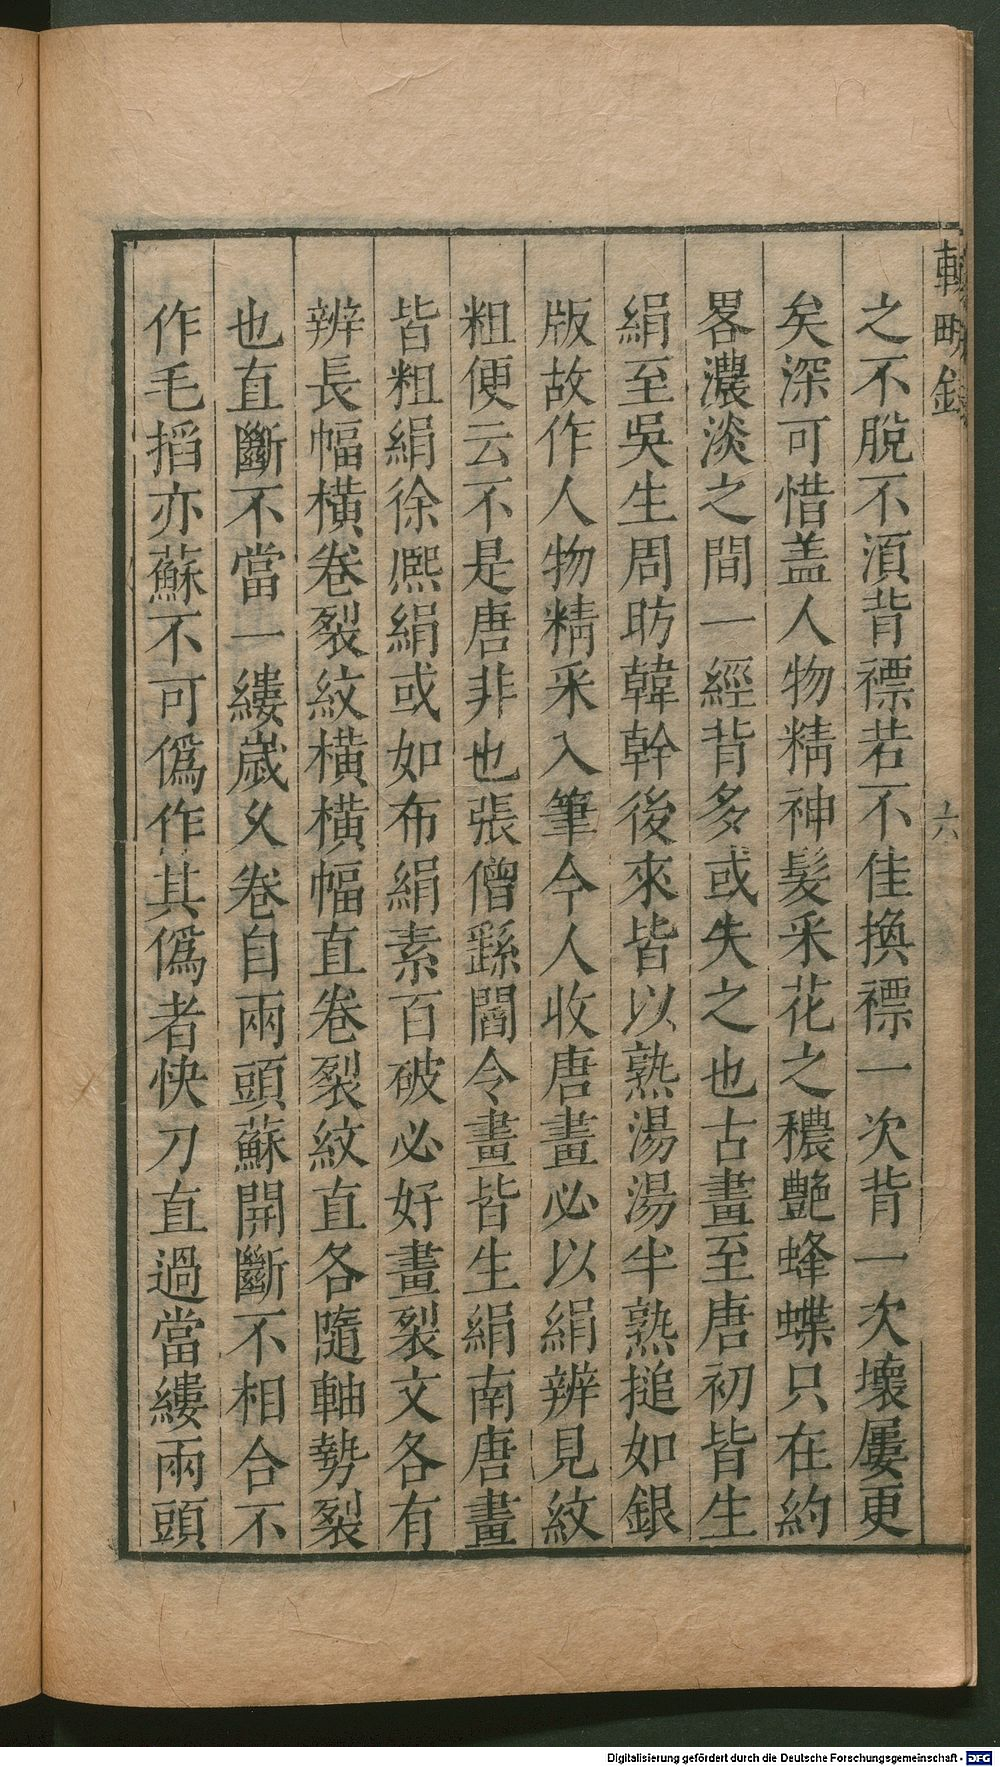 輟畊錄
六
之不脫不湏背褾若不佳換褾一次背一次壞屢更
矣深可惜盖人物精神髮采花之穠艶蜂蝶只在約
畧濃淡之間一經背多或失之也古畫至唐初皆生
絹至吳生周昉韓幹後來皆以熟湯湯半熟搥如銀
版故作人物精采入筆今人收唐畫必以絹辨見紋
粗便云不是唐非也張僧繇閻令畫皆生絹南唐畫
皆粗絹徐熈絹或如布絹素百破必好畫裂文各有
辨長幅橫卷裂紋橫橫幅直卷裂紋直各隨軸勢裂
也直斷不當一縷歲久卷自兩頭蘇開斷不相合不
作毛搯亦蘇不可僞作其僞者快刀直過當縷兩頭
Digitalisierung gefördert durch die Deutsche Forschungsgemeinschaft - DFG